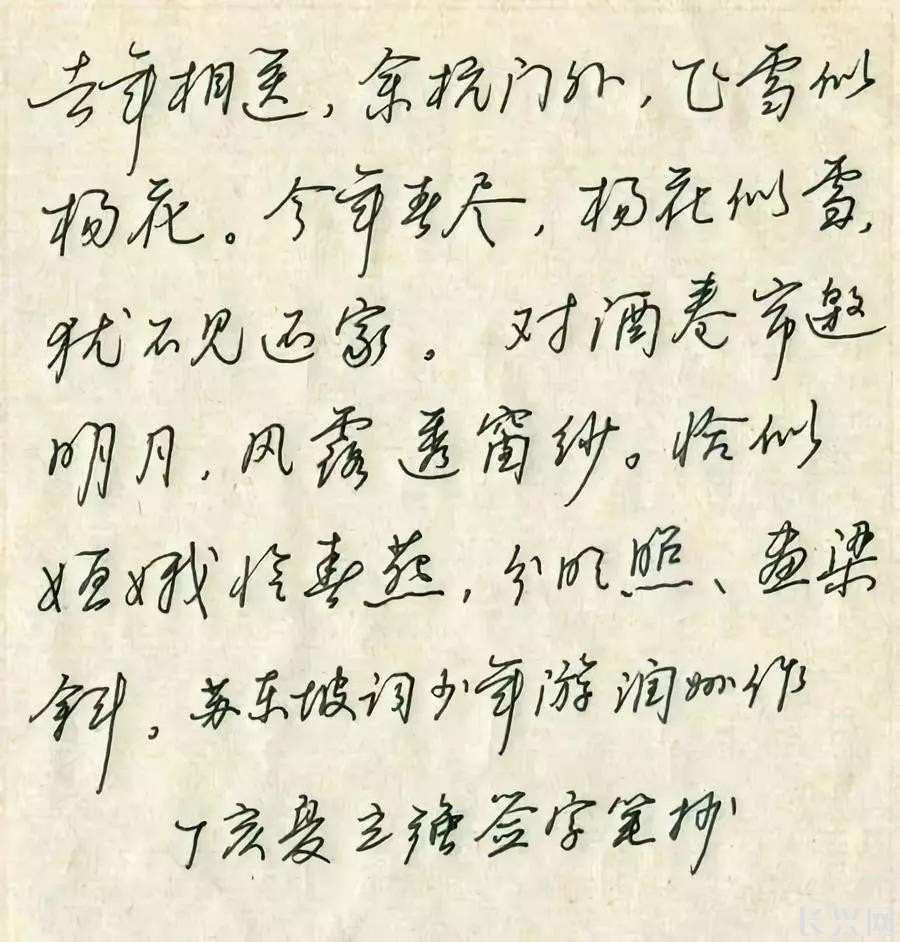 去年相送，余杭门外，飞雪似
杨花。今年春尽，杨花似雪，
犹不见还家。 对酒卷帘邀
明月，风露透窗纱。恰似
姮娥怜春燕，分明照、画梁
斜。苏东坡词少年游润州作
丁亥夏立强签字笔抄
长兴网